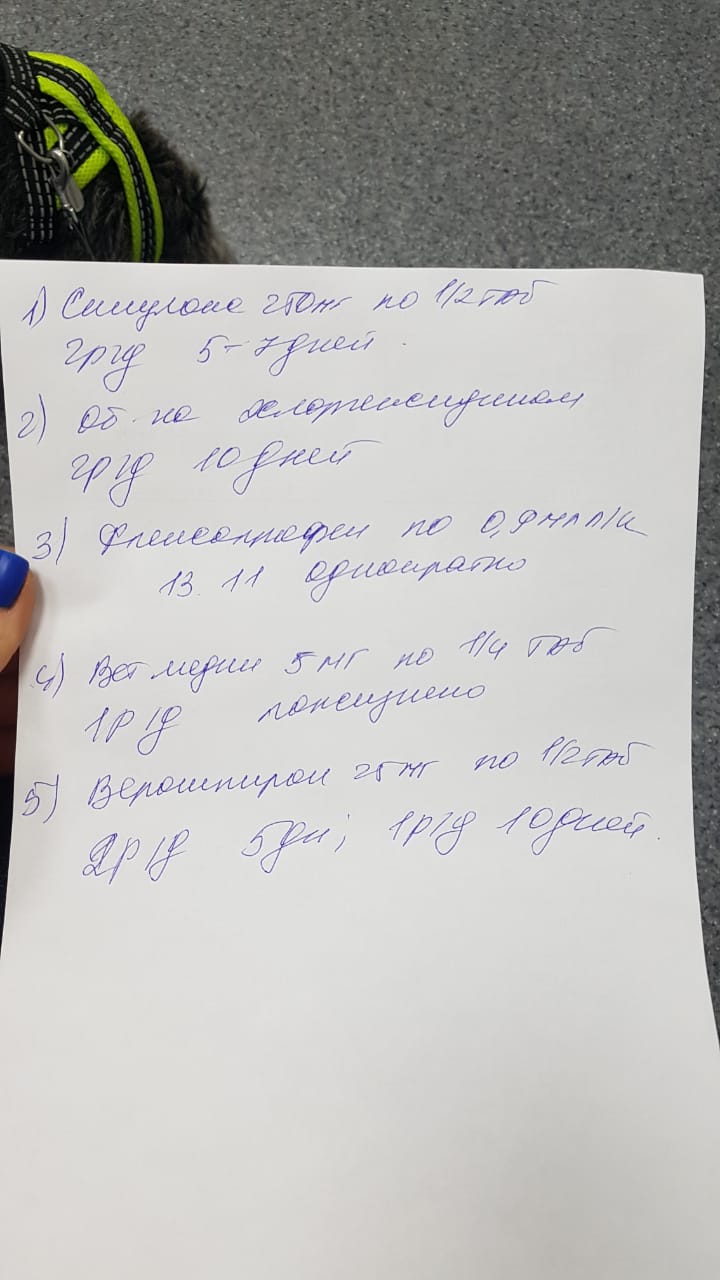 1) Синулокс 250мг по 1/2 таб
2р/д 5-7 дней.
2) Об-ка хлоргексидином
2р/д 10 дней
3) Флексопрофен по 0,9 мл п/к
13.11 однократно
4) Ветмедин 5 мг по 1/4 таб
1р/д пожизнено
5) Верошпирон 25 мг по 1/2 таб
2р/д 5дн; 1р/д 10 дней.